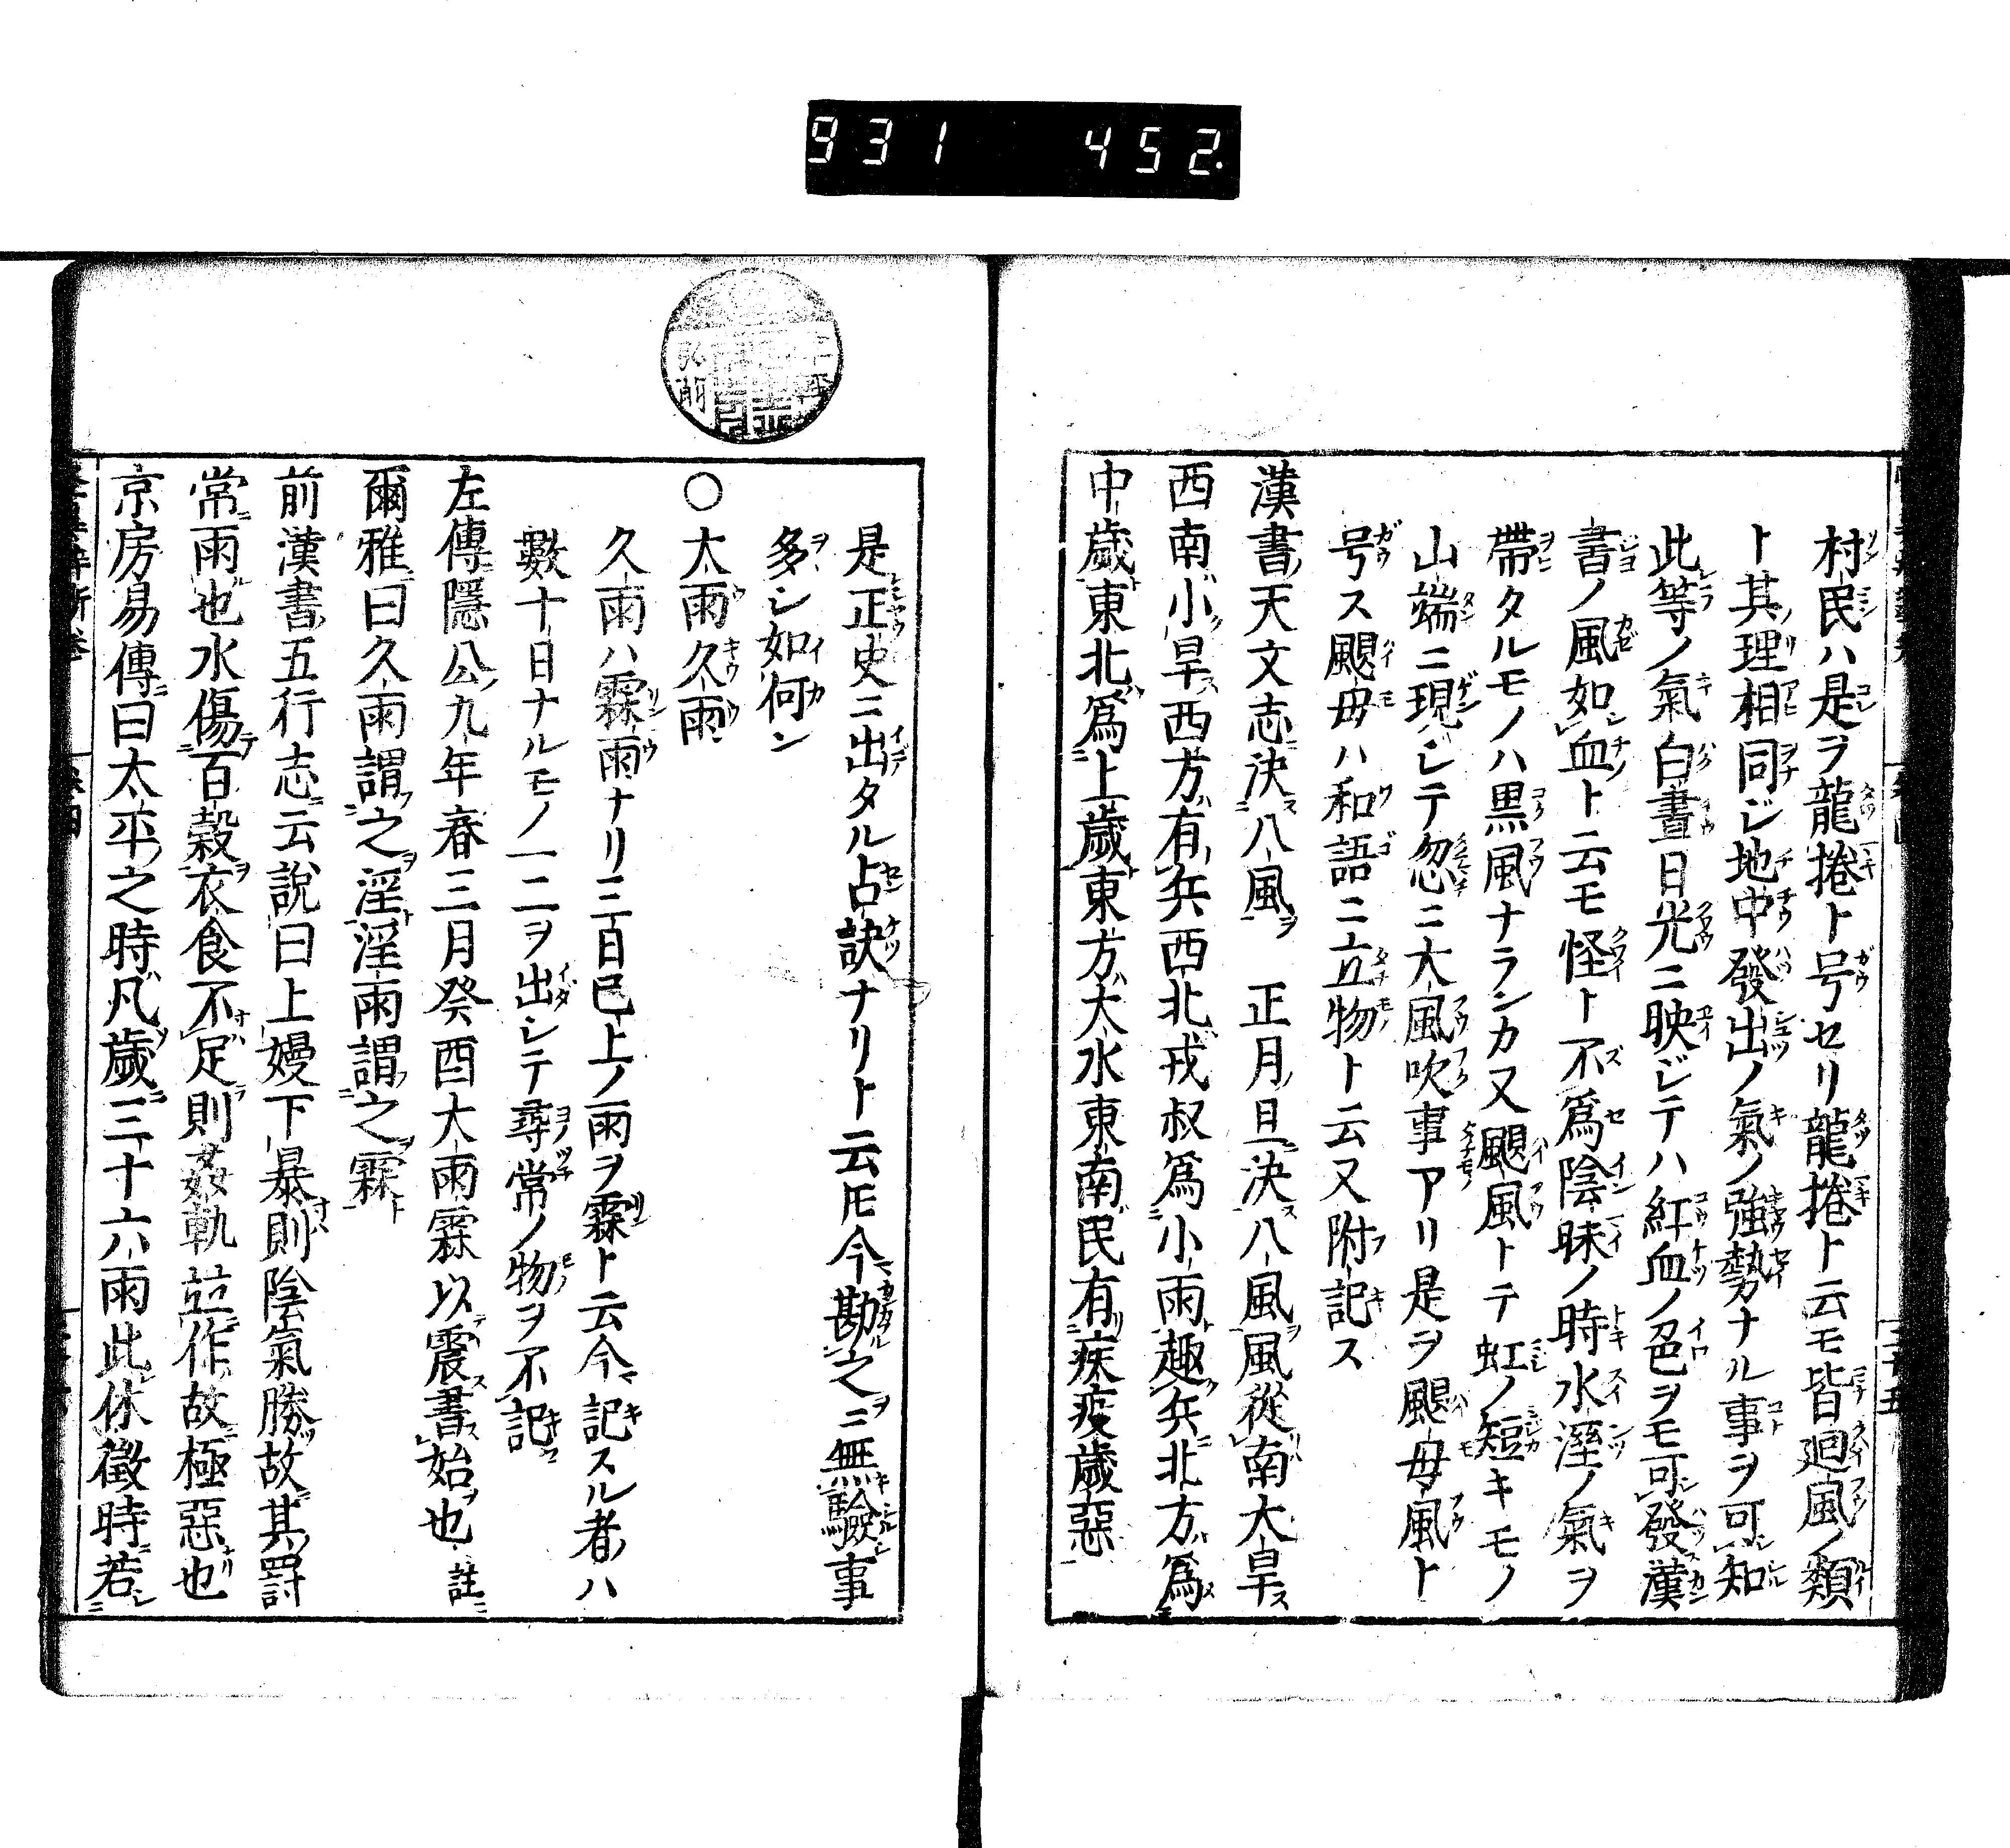 931 452.
村民ハ是ヲ龍捲ト号セリ龍捲ト云モ皆廻風ノ類
ト其理相同ジ地中發出ノ氣ノ強勢ナル事ヲ可知
此等ノ氣白晝日光ニ映ジテハ紅血ノ色ヲモ可發漢
書ノ風如血ト云モ怪ト不為陰昧ノ時水溼ノ氣ヲ
帶タルモノハ黒風ナランカ又颶風トテ虹ノ短キモノ
山端ニ現ジテ忽ニ大風吹事アリ是ヲ颶母風ト
号ス颶母ハ和語ニ立物ト云又附記ス
漢書天文志決八風 正月旦決八風風從南大旱
西南小旱西方有兵西北戎叔為小雨趣兵北方為
中歲東北為上歲東方大水東南民有疾疫歲惡
是正史ニ出タル占訣ナリト云𪜈今勘之ニ無驗事
多シ如何ン
○大雨久雨
久雨ハ霖雨ナリ三日已上ノ雨ヲ霖ト云今記スル者ハ
數十日ナルモノ一二ヲ出シテ尋常ノ物ヲ不記
左傳隱公九年春三月癸酉大雨霖以震書始也 註
爾雅曰久雨謂之淫淫雨謂之霖
前漢書五行志云說曰上嫚下暴則陰氣勝故其罰
常雨也水傷百穀衣食不足則姦軌並作故極惡也
京房易傳曰太平之時凡歲三十六雨此休徵時若
弘前